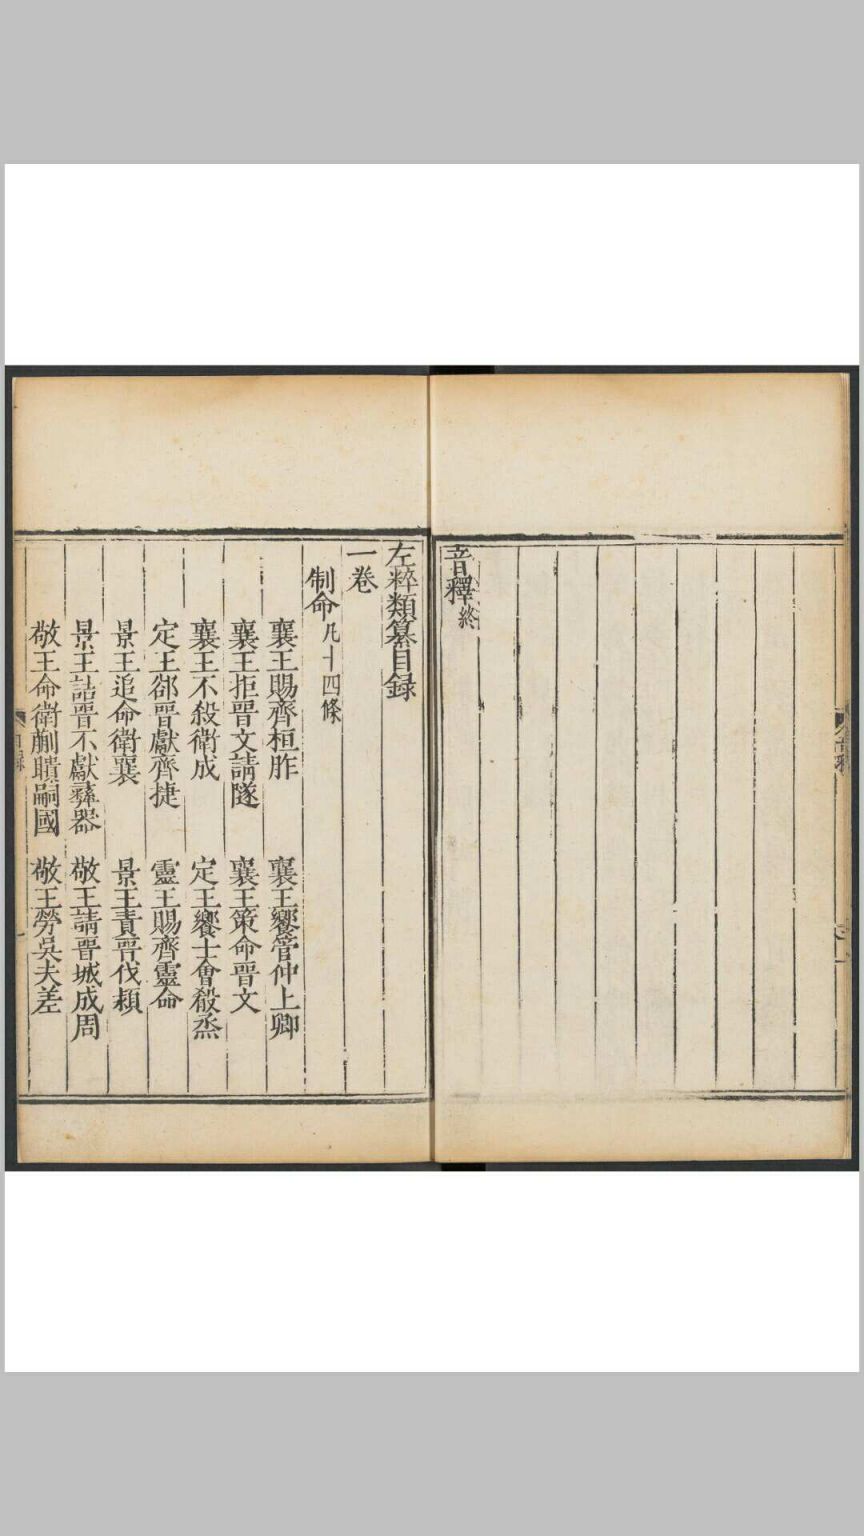 音釋終
左粹類纂目録
一卷
制命凡十四條
襄王賜齊桓胙 襄王饗管仲上卿
襄王拒晉文請隧 襄王策命晉文
襄王不殺衛成 定王饗士會殽烝
定王郤晉獻齊捷 靈王賜齊靈命
景王追命衛襄 景王責晉伐潁
景王詰晉不獻彞器 敬王請晉城成周
敬王命衛蒯聵嗣國 敬王勞吳夫差